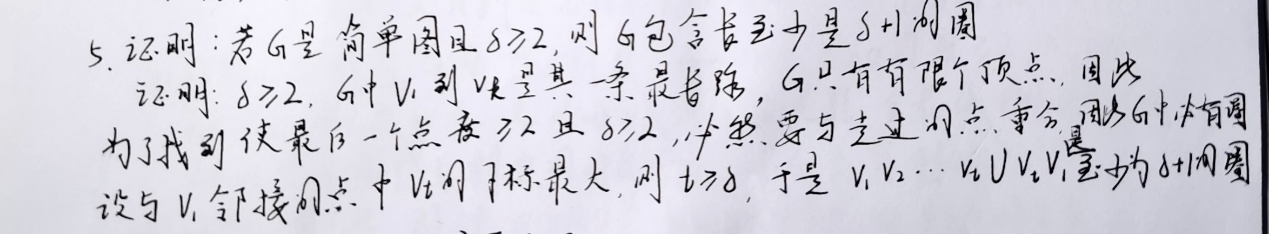 5. 证明:若G是简单图且δ≥2,则G包含长至少是δ+1的圈
证明:δ≥2,G中V₁到Vₖ是其一条最长路,G只有有限个顶点,因此
为了找到使最后一个点度≥2且δ≥2,必然要与走过的点重合,因此G中必有圈
设与V₁邻接的点中Vₜ的下标最大,则t≥δ,于是V₁V₂…Vₜ∪VₜV₁是至少为δ+1的圈